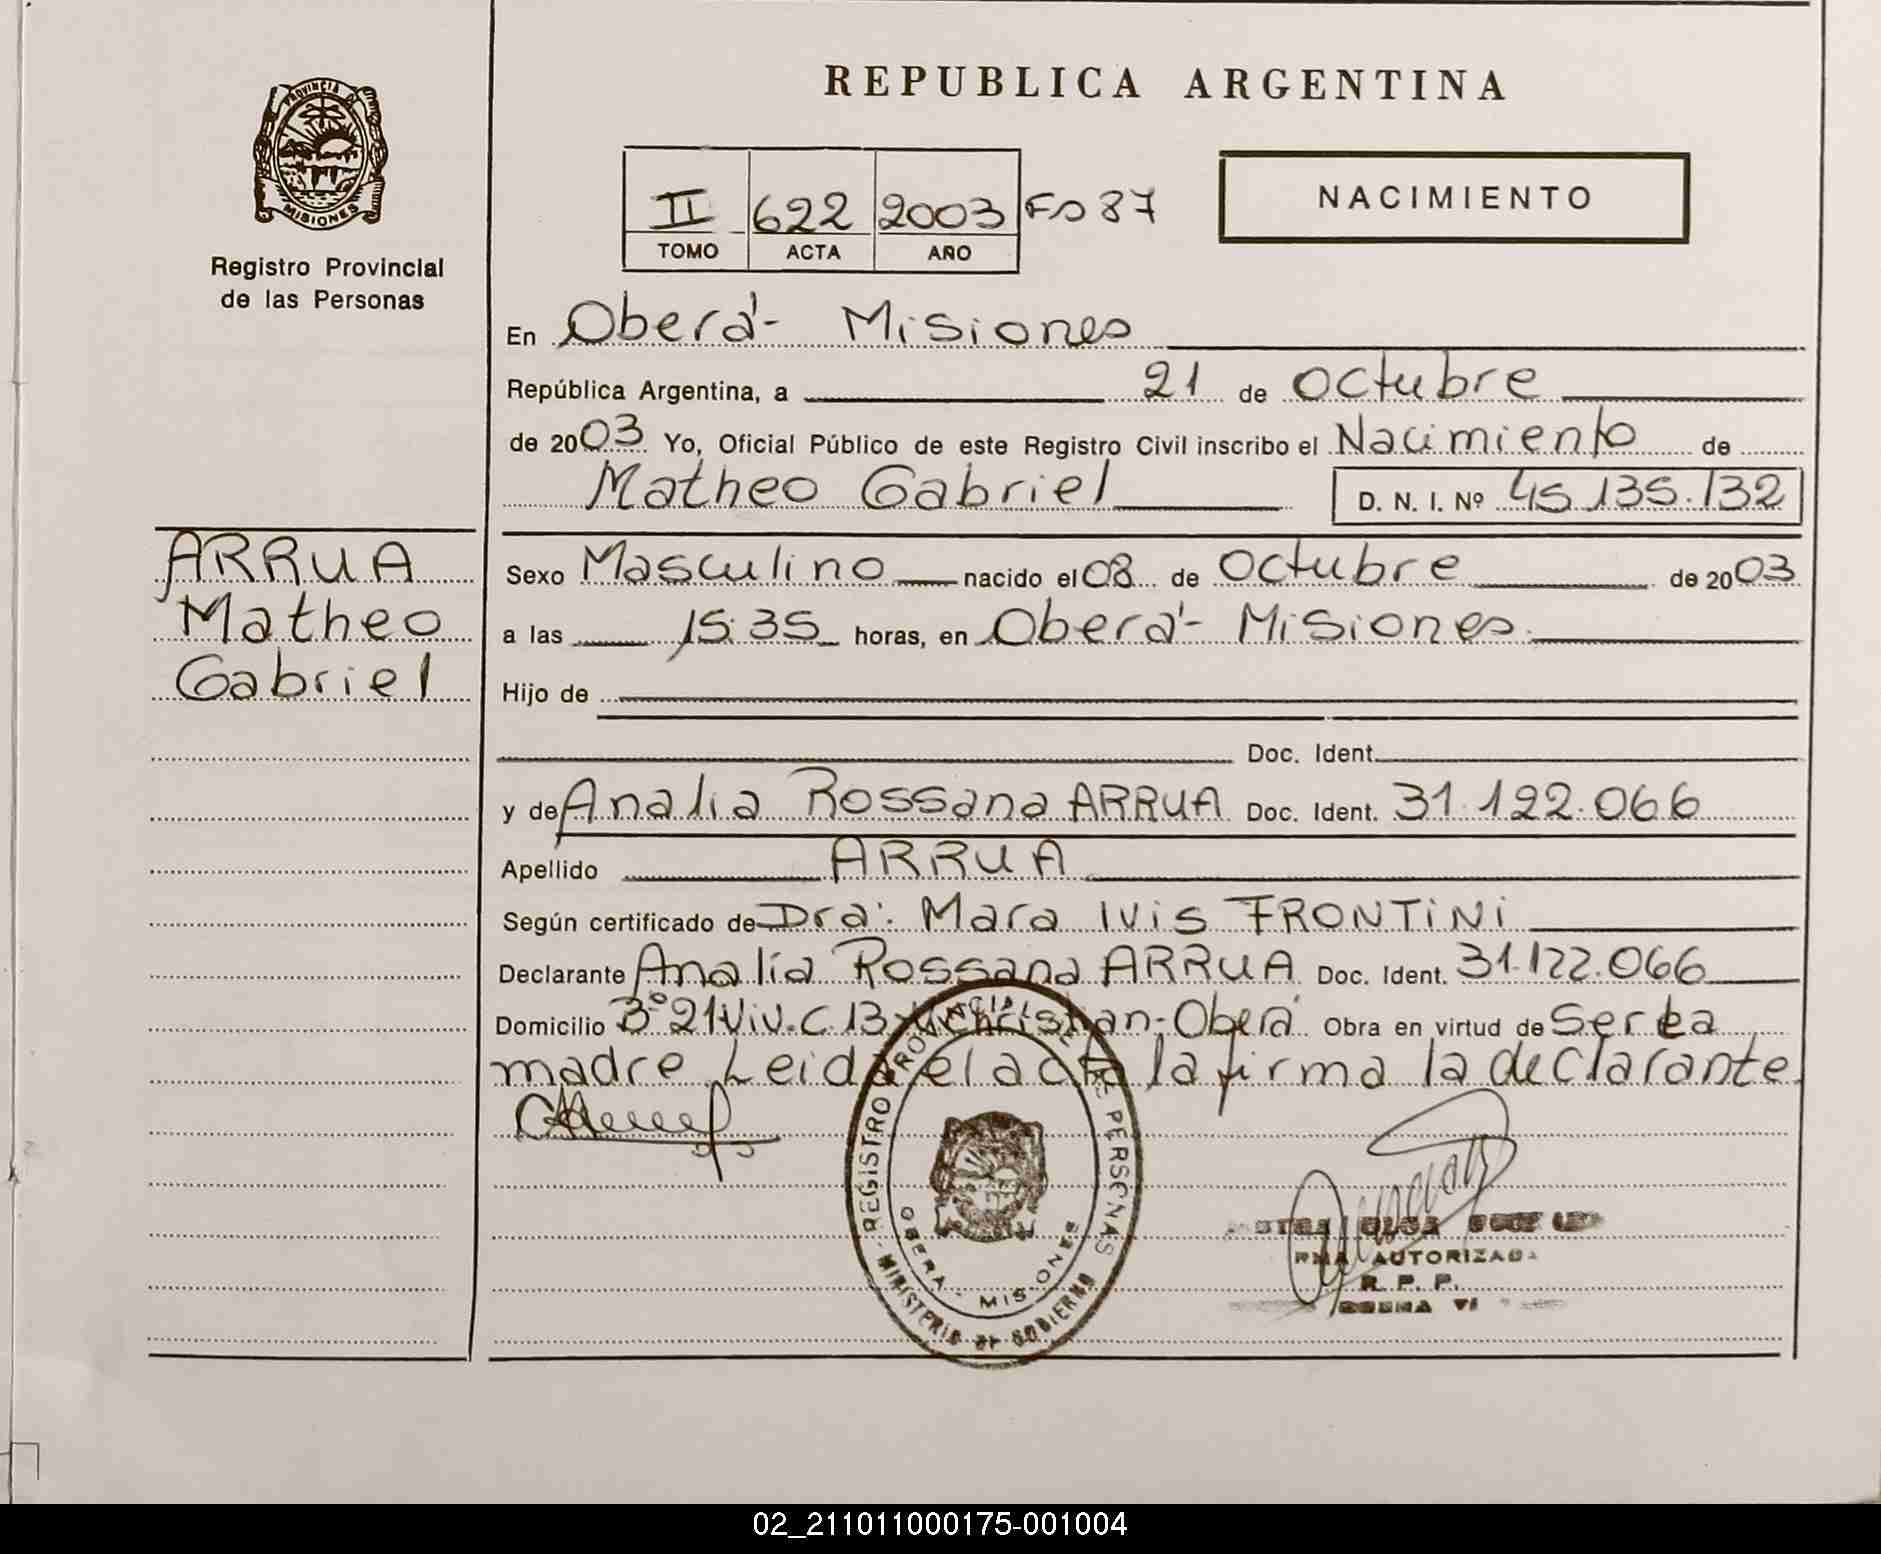 REPUBLICA ARGENTINA
PROVINCIA DE
MISIONES
Registro Provincial
de las Personas
II 622 2003 Fo 87
TOMO ACTA AÑO
NACIMIENTO
En Oberá - Misiones
República Argentina, a 21 de Octubre
de 2003 Yo, Oficial Público de este Registro Civil inscribo el Nacimiento de
Matheo Gabriel D. N. I. Nº 45.135.132
ARRUA
Matheo
Gabriel
Sexo Masculino nacido el 08 de Octubre de 2003
a las 15:35 horas, en Oberá - Misiones.
Hijo de
Doc. Ident.
y de Analia Rossana ARRUA Doc. Ident. 31.122.066
Apellido ARRUA
Según certificado de Dra. Mara Ivis FRONTINI
Declarante Analía Rossana ARRUA Doc. Ident. 31.122.066
Domicilio 3º 21 Viv. C. 13 Christian - Oberá Obra en virtud de Ser la
madre Leida el acta la firma la declarante.
REGISTRO PROVINCIAL DE LAS PERSONAS
OBERA - MISIONES
MINISTERIO DE GOBIERNO
AUTORIZADA
R. P. P.
02_211011000175-001004